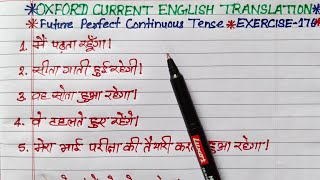 *OXFORD CURRENT ENGLISH TRANSLATION*
*Future Perfect Continuous Tense *EXERCISE-176
1. मैं पढ़ता रहूँगा।
2. सीता गाती हुई रहेगी।
3. वह सोता हुआ रहेगा।
4. वे टहलते हुए रहेंगे।
5. मेरा भाई परीक्षा की तैयारी करता हुआ रहेगा।